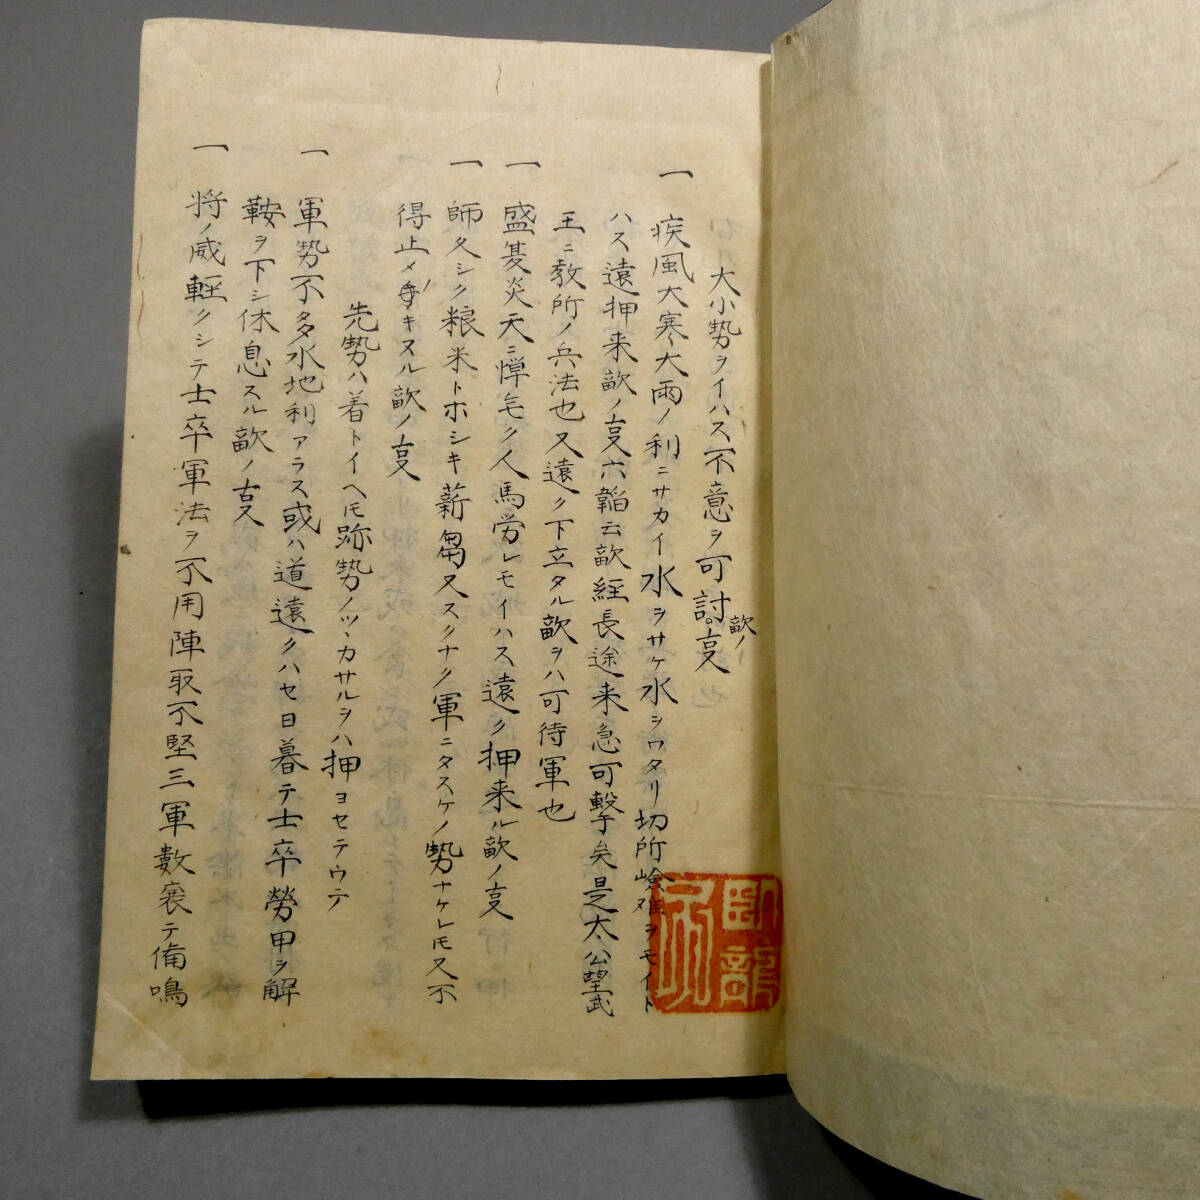 大小勢ヲイハス不意ヲ可討敵ノ叓
一 疾風大寒大雨ノ利ニサカイ水ヲサケ水シワタリ切所嶮難ヲモイト
ハス遠押来敵ノ叓六韜云敵経長途来急可撃矣是太公望武
王ニ教所ノ兵法也又遠ク下立タル敵ヲハ可待軍也
一 盛夏炎天ニ惮无ク人馬労レモイハス遠ク押来ル敵ノ叓
一 師久シク粮米トホシキ薪芻又スクナク軍ニタスケノ勢ナケレ𪜈又不
得止メキヌル敵ノ叓
先勢ハ着トイヘ𪜈跡勢ノツヽカサルヲハ押ヨセテウテ
一 軍勢不多水地利アラス或ハ道遠クハセ日暮テ士卒勞甲ヲ解
鞍ヲ下シ休息スル敵ノ叓
一 将ノ威軽クシテ士卒軍法ヲ不用陣取不堅三軍数襄テ備鳴
臥龍